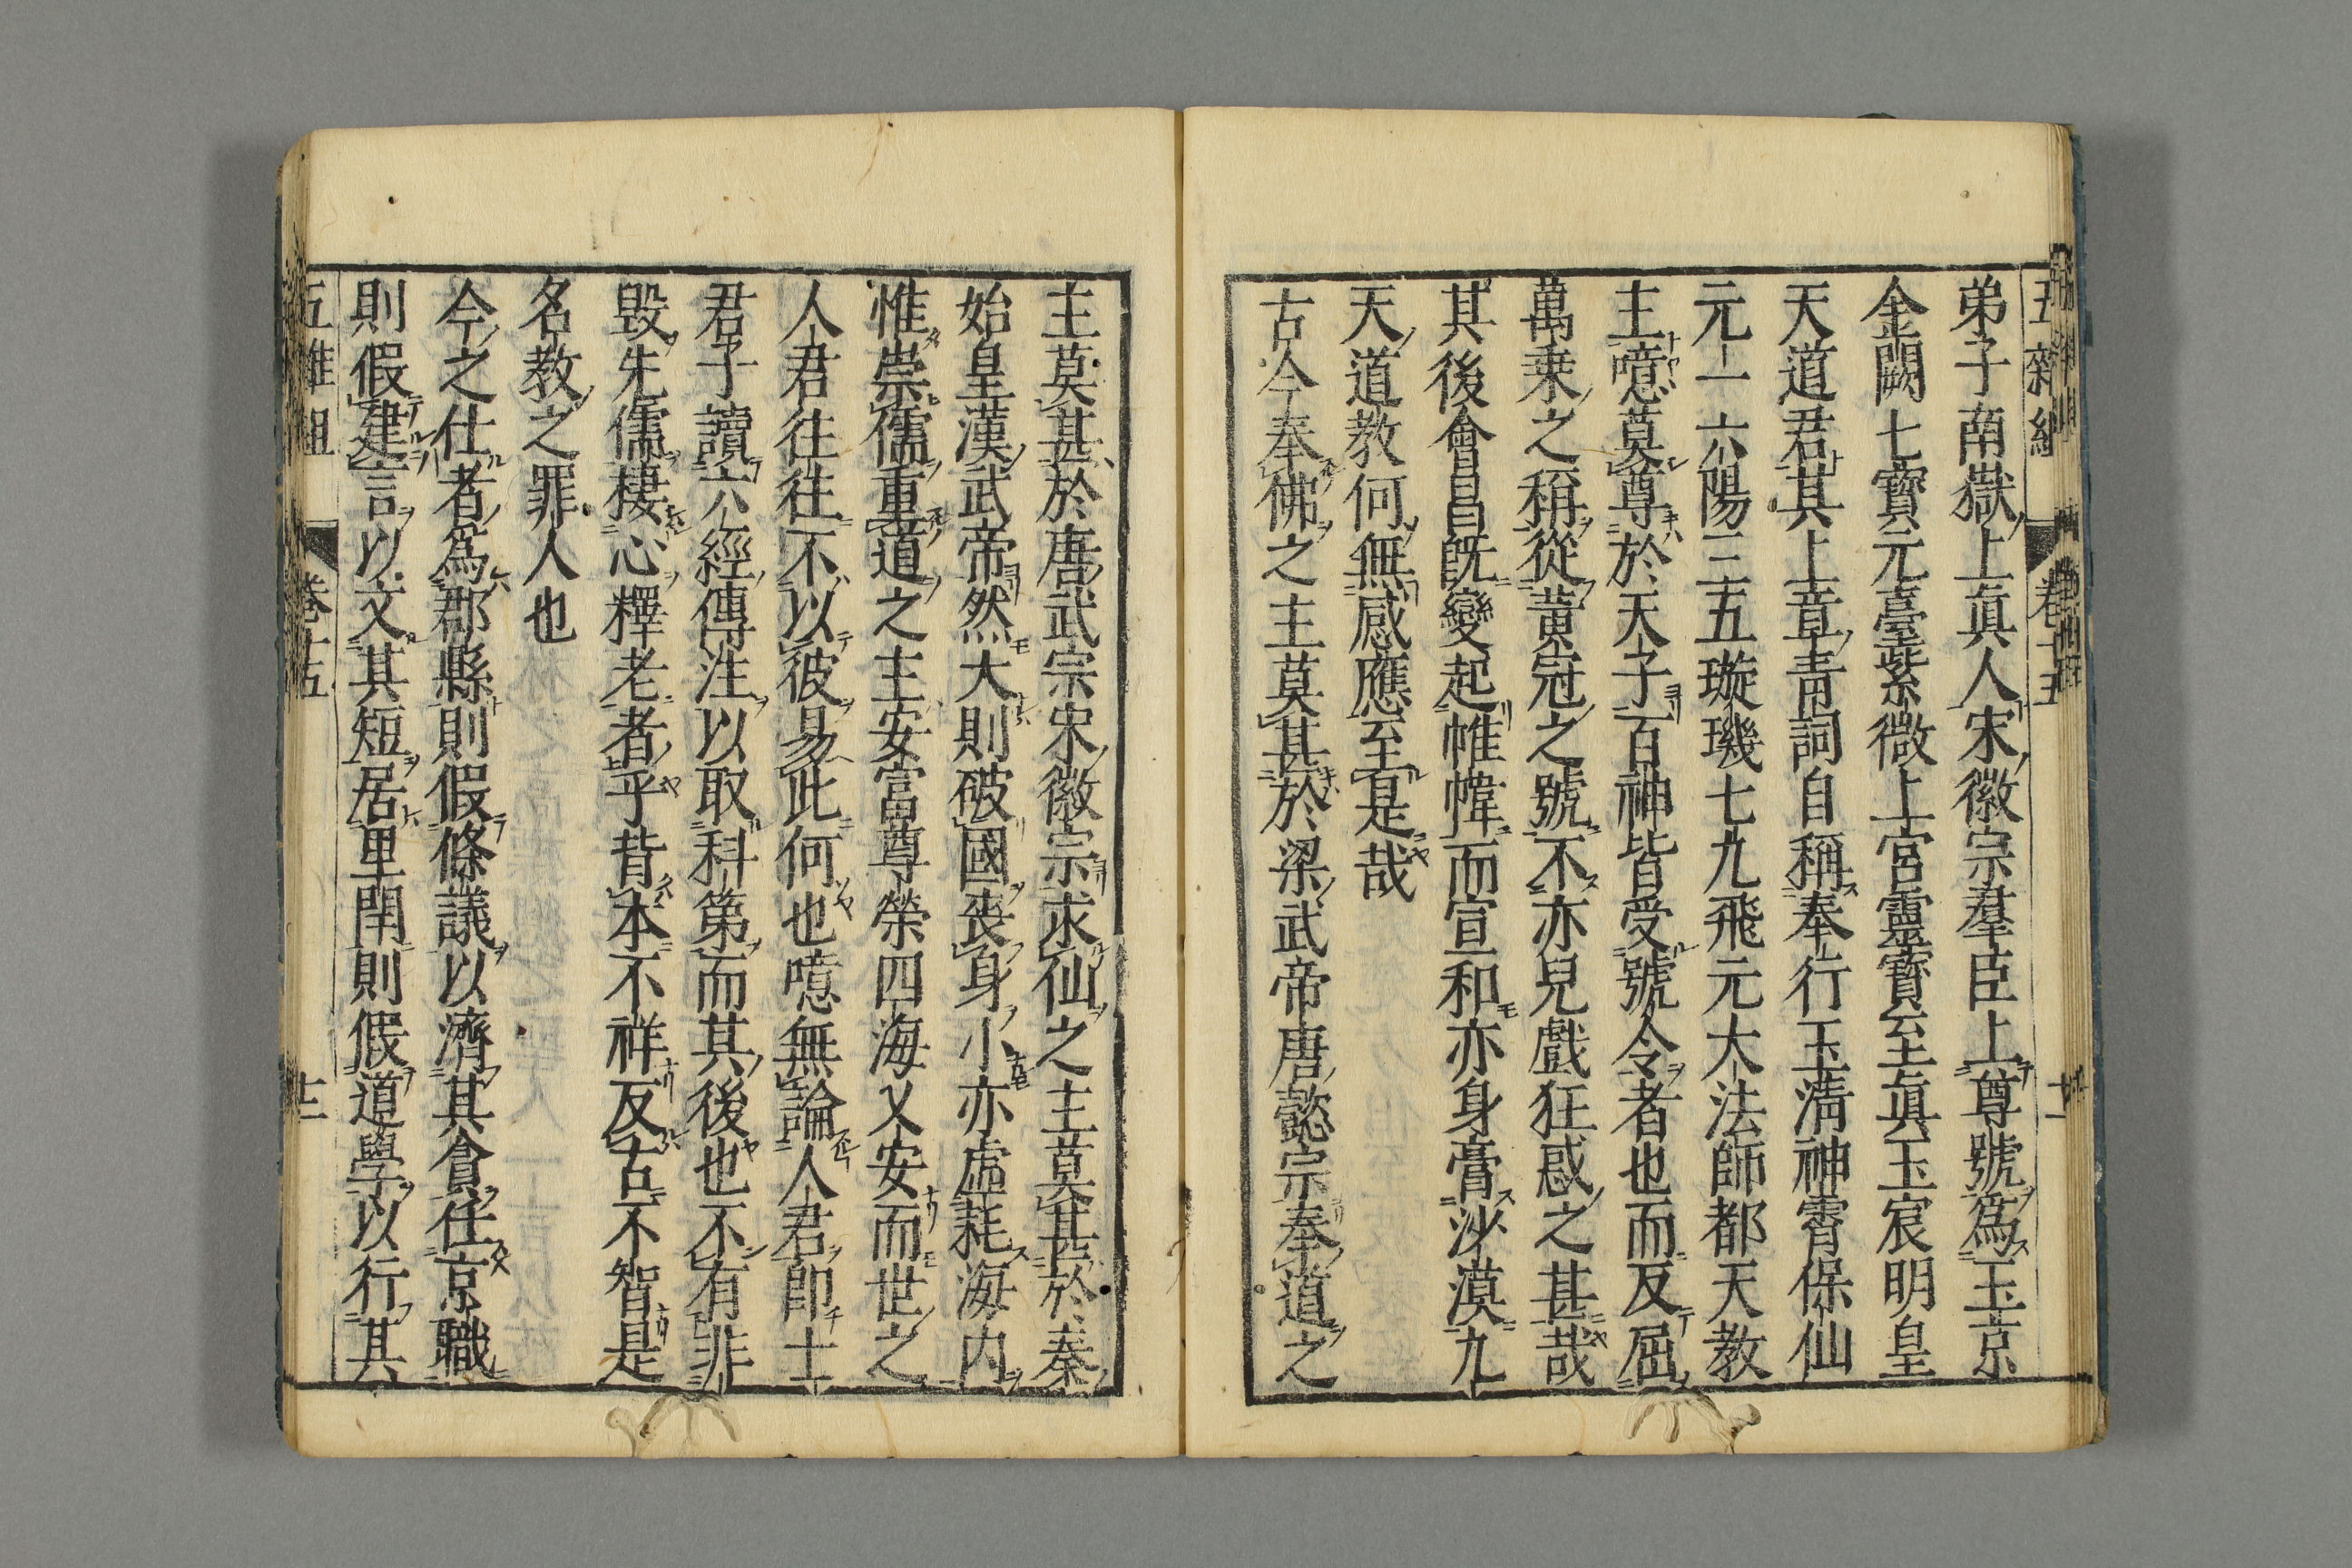 五雜組 卷十五 十一
弟子南嶽上眞人宋徽宗羣臣上尊號爲玉京
金闕七寶元臺紫微上宮靈寶至眞玉宸明皇
天道君其上章青詞自稱奉行玉淸神霄保仙
元一六陽三五璇璣七九飛元大法師都天教
主噫莫尊於天子百神皆受號令者也而反屈
萬乗之稱從黄冠之號不亦兒戲狂惑之甚哉
其後會昌旣變起帷幃而宣和亦身膏沙漠九
天道教何無感應至是哉
古今奉佛之主莫甚於梁武帝唐懿宗奉道之
主莫甚於唐武宗宋徽宗求仙之主莫甚於秦
始皇漢武帝然大則破國喪身小亦虛耗海内
惟崇儒重道之主安富尊榮四海乂安而世之
人君往往不以彼易此何也噫無論人君即士
君子讀六經傳注以取科第而其後也不有非
毀先儒棲心釋老者乎背本不祥反古不智是
名教之罪人也
今之仕者爲郡縣則假條議以濟其貪任京職
則假建言以文其短居里閈則假道學以行其
五雜組 卷十五 十二